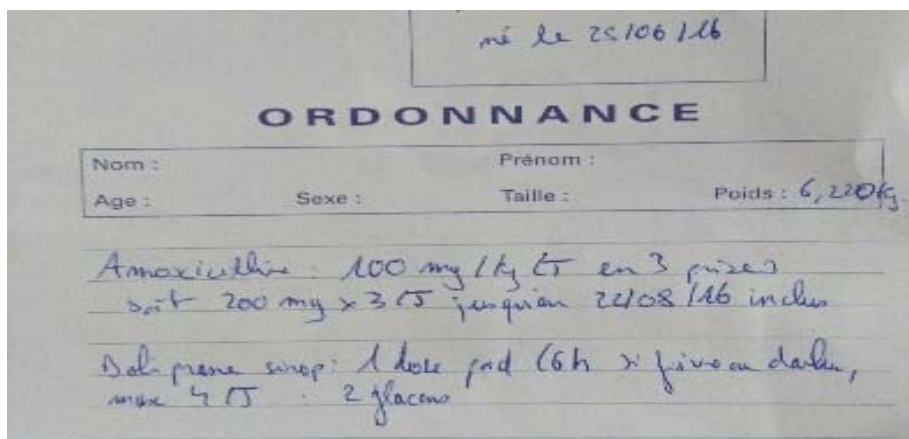 né le 25/06/16
ORDONNANCE
Nom : Prénom :
Age : Sexe : Taille : Poids : 6,220kg
Amoxicilline : 100 mg/kg/J en 3 prises
soit 200 mg x 3/J jusqu'au 22/08/16 inclus
Doliprane sirop : 1 dose poids /6h si fièvre ou douleur,
max 4/J . 2 flacons